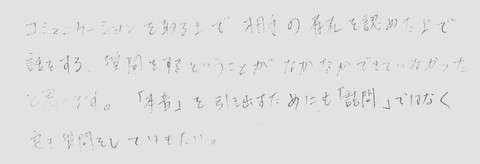 コミュニケーションを取る上で相手の存在を認めた上で
話をする、質問をするということがなかなかできていなかった
と思います。「本音」を引き出すためにも「詰問」ではなく
質問をしていきたい。